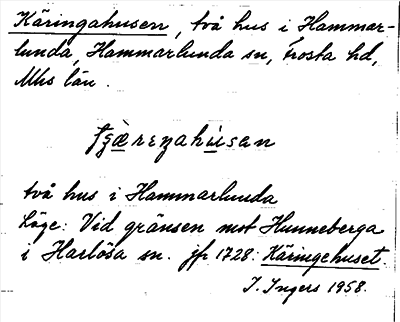 Käringahusen, två hus i Hammar-
lunda, Hammarlunda sn, Frosta hd,
Mhs län.
två hus i Hammarlunda
Läge: Vid gränsen mot Hunneberga
i Harlösa sn. jfr 1728: Käringehuset.
I. Ingers 1958.